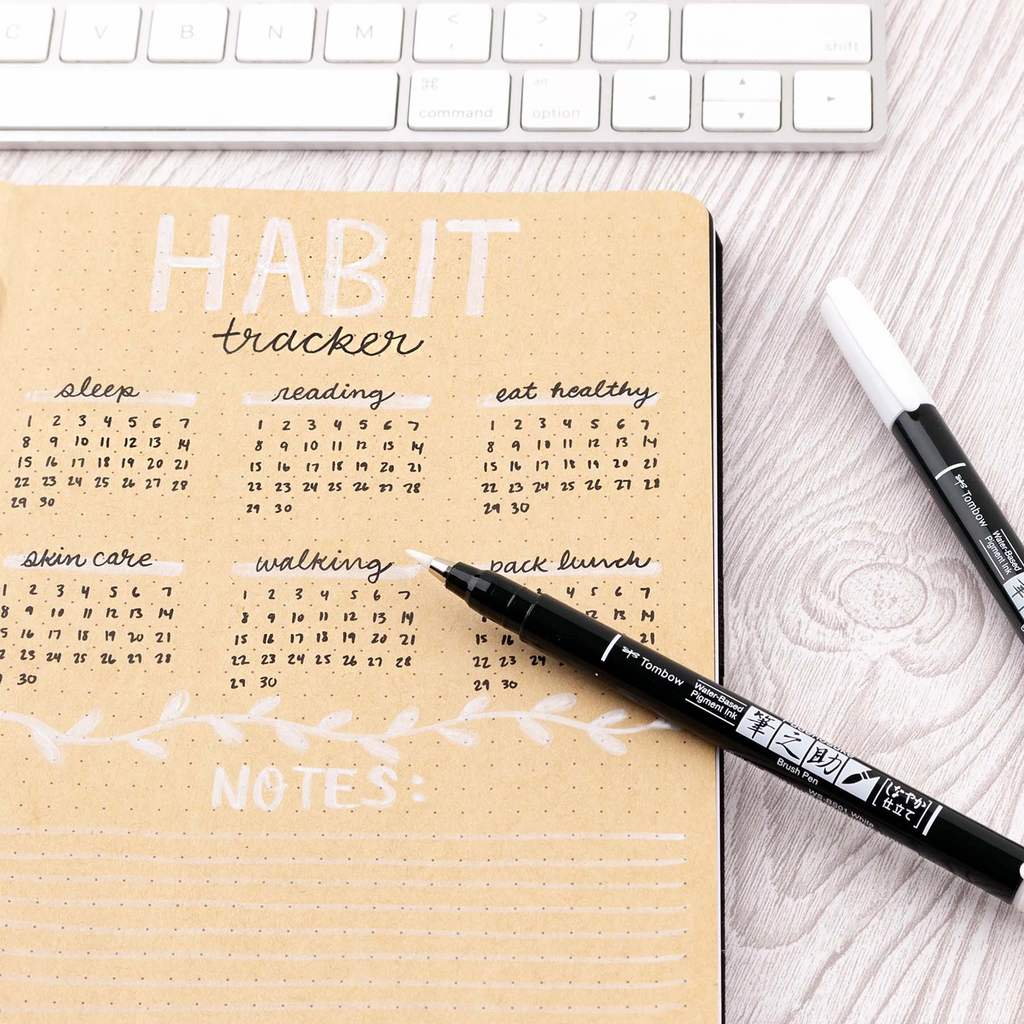 C V B N M < , > . ? / shift
⌘ command alt option ◄ ▲ ▼ ►
HABIT
tracker
sleep
1 2 3 4 5 6 7
8 9 10 11 12 13 14
15 16 17 18 19 20 21
22 23 24 25 26 27 28
29 30
reading
1 2 3 4 5 6 7
8 9 10 11 12 13 14
15 16 17 18 19 20 21
22 23 24 25 26 27 28
29 30
eat healthy
1 2 3 4 5 6 7
8 9 10 11 12 13 14
15 16 17 18 19 20 21
22 23 24 25 26 27 28
29 30
skin care
1 2 3 4 5 6 7
8 9 10 11 12 13 14
5 16 17 18 19 20 21
22 23 24 25 26 27 28
29 30
walking
1 2 3 4 5 6 7
8 9 10 11 12 13 14
15 16 17 18 19 20 21
22 23 24 25 26 27 28
29 30
pack lunch
3 4 5 6 7
8 12 13 14
15 16 21
22 23 24
29 30
NOTES:
Tombow
Water-Based
Pigment Ink
筆之助
Brush Pen
しなやか
仕立て
WS-BS01 White
Tombow
Water-Based
Pigment Ink